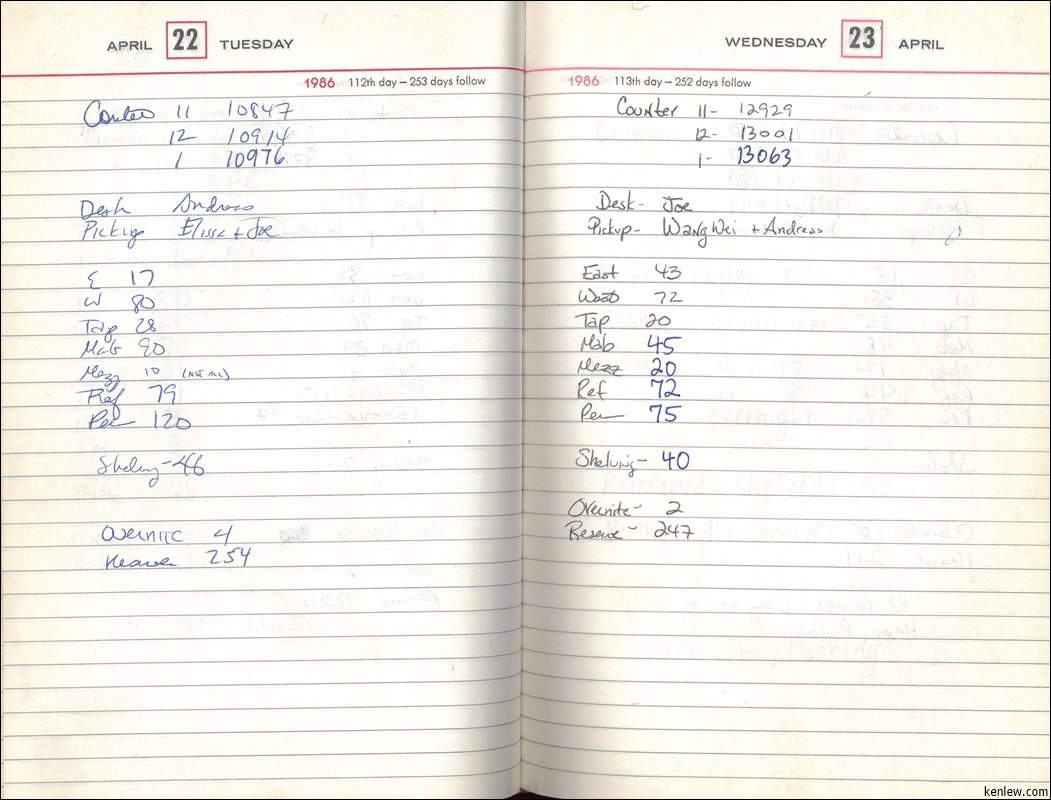 APRIL 22 TUESDAY
1986 112th day – 253 days follow
Counter 11 10847
12 10914
1 10976
Desk Andreas
Pickup Elissa + Joe
E 17
W 80
Tap 28
Mab 90
Mezz 10 (not all)
Ref 79
Per 120
Shelving - 46
Overnite 4
Reserve 254
WEDNESDAY 23 APRIL
1986 113th day – 252 days follow
Counter 11- 12929
12- 13001
1- 13063
Desk- Joe
Pickup- Wang Wei + Andreas
East 43
West 72
Tap 20
Mab 45
Mezz 20
Ref 72
Per 75
Shelving- 40
Overnite- 2
Reserve - 247
kenlew.com